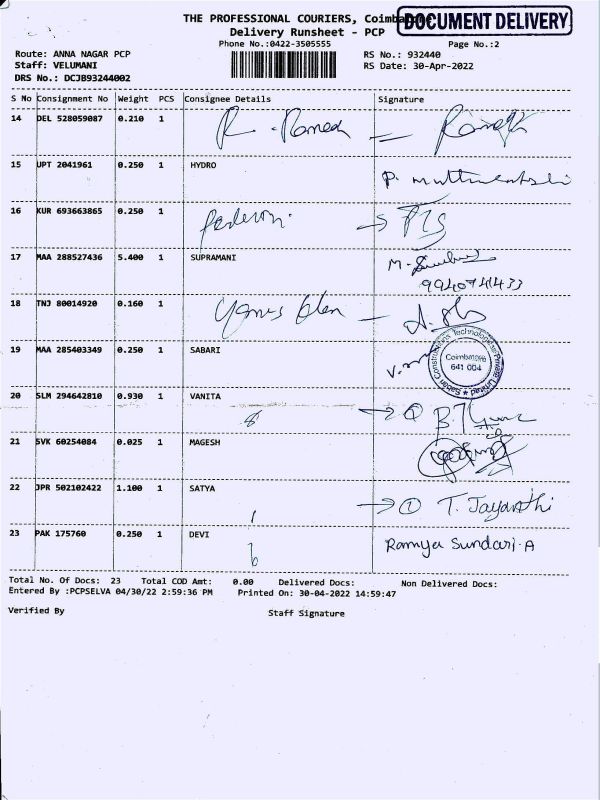 THE PROFESSIONAL COURIERS, Coimbatore
DOCUMENT DELIVERY
Delivery Runsheet - PCP
Phone No.:0422-3505555
Page No.:2
Route: ANNA NAGAR PCP
RS No.: 932440
Staff: VELUMANI
RS Date: 30-Apr-2022
DRS No.: DCJB93244002
S No Consignment No Weight PCS Consignee Details Signature
14 DEL 528059087 0.210 1
15 JPT 2041961 0.250 1 HYDRO
16 KUR 693663865 0.250 1
17 MAA 288527436 5.400 1 SUPRAMANI
18 TNJ 80014920 0.160 1
19 MAA 285403349 0.250 1 SABARI
Coimbatore
641 004
20 SLM 294642810 0.930 1 VANITA
8
21 SVK 60254084 0.025 1 MAGESH
22 JPR 502102422 1.100 1 SATYA
1 T. Jayanthi
23 PAK 175760 0.250 1 DEVI Ramya Sundari.A
Total No. Of Docs: 23 Total COD Amt: 0.00 Delivered Docs: Non Delivered Docs:
Entered By :PCPSELVA 04/30/22 2:59:36 PM Printed On: 30-04-2022 14:59:47
Verified By Staff Signature